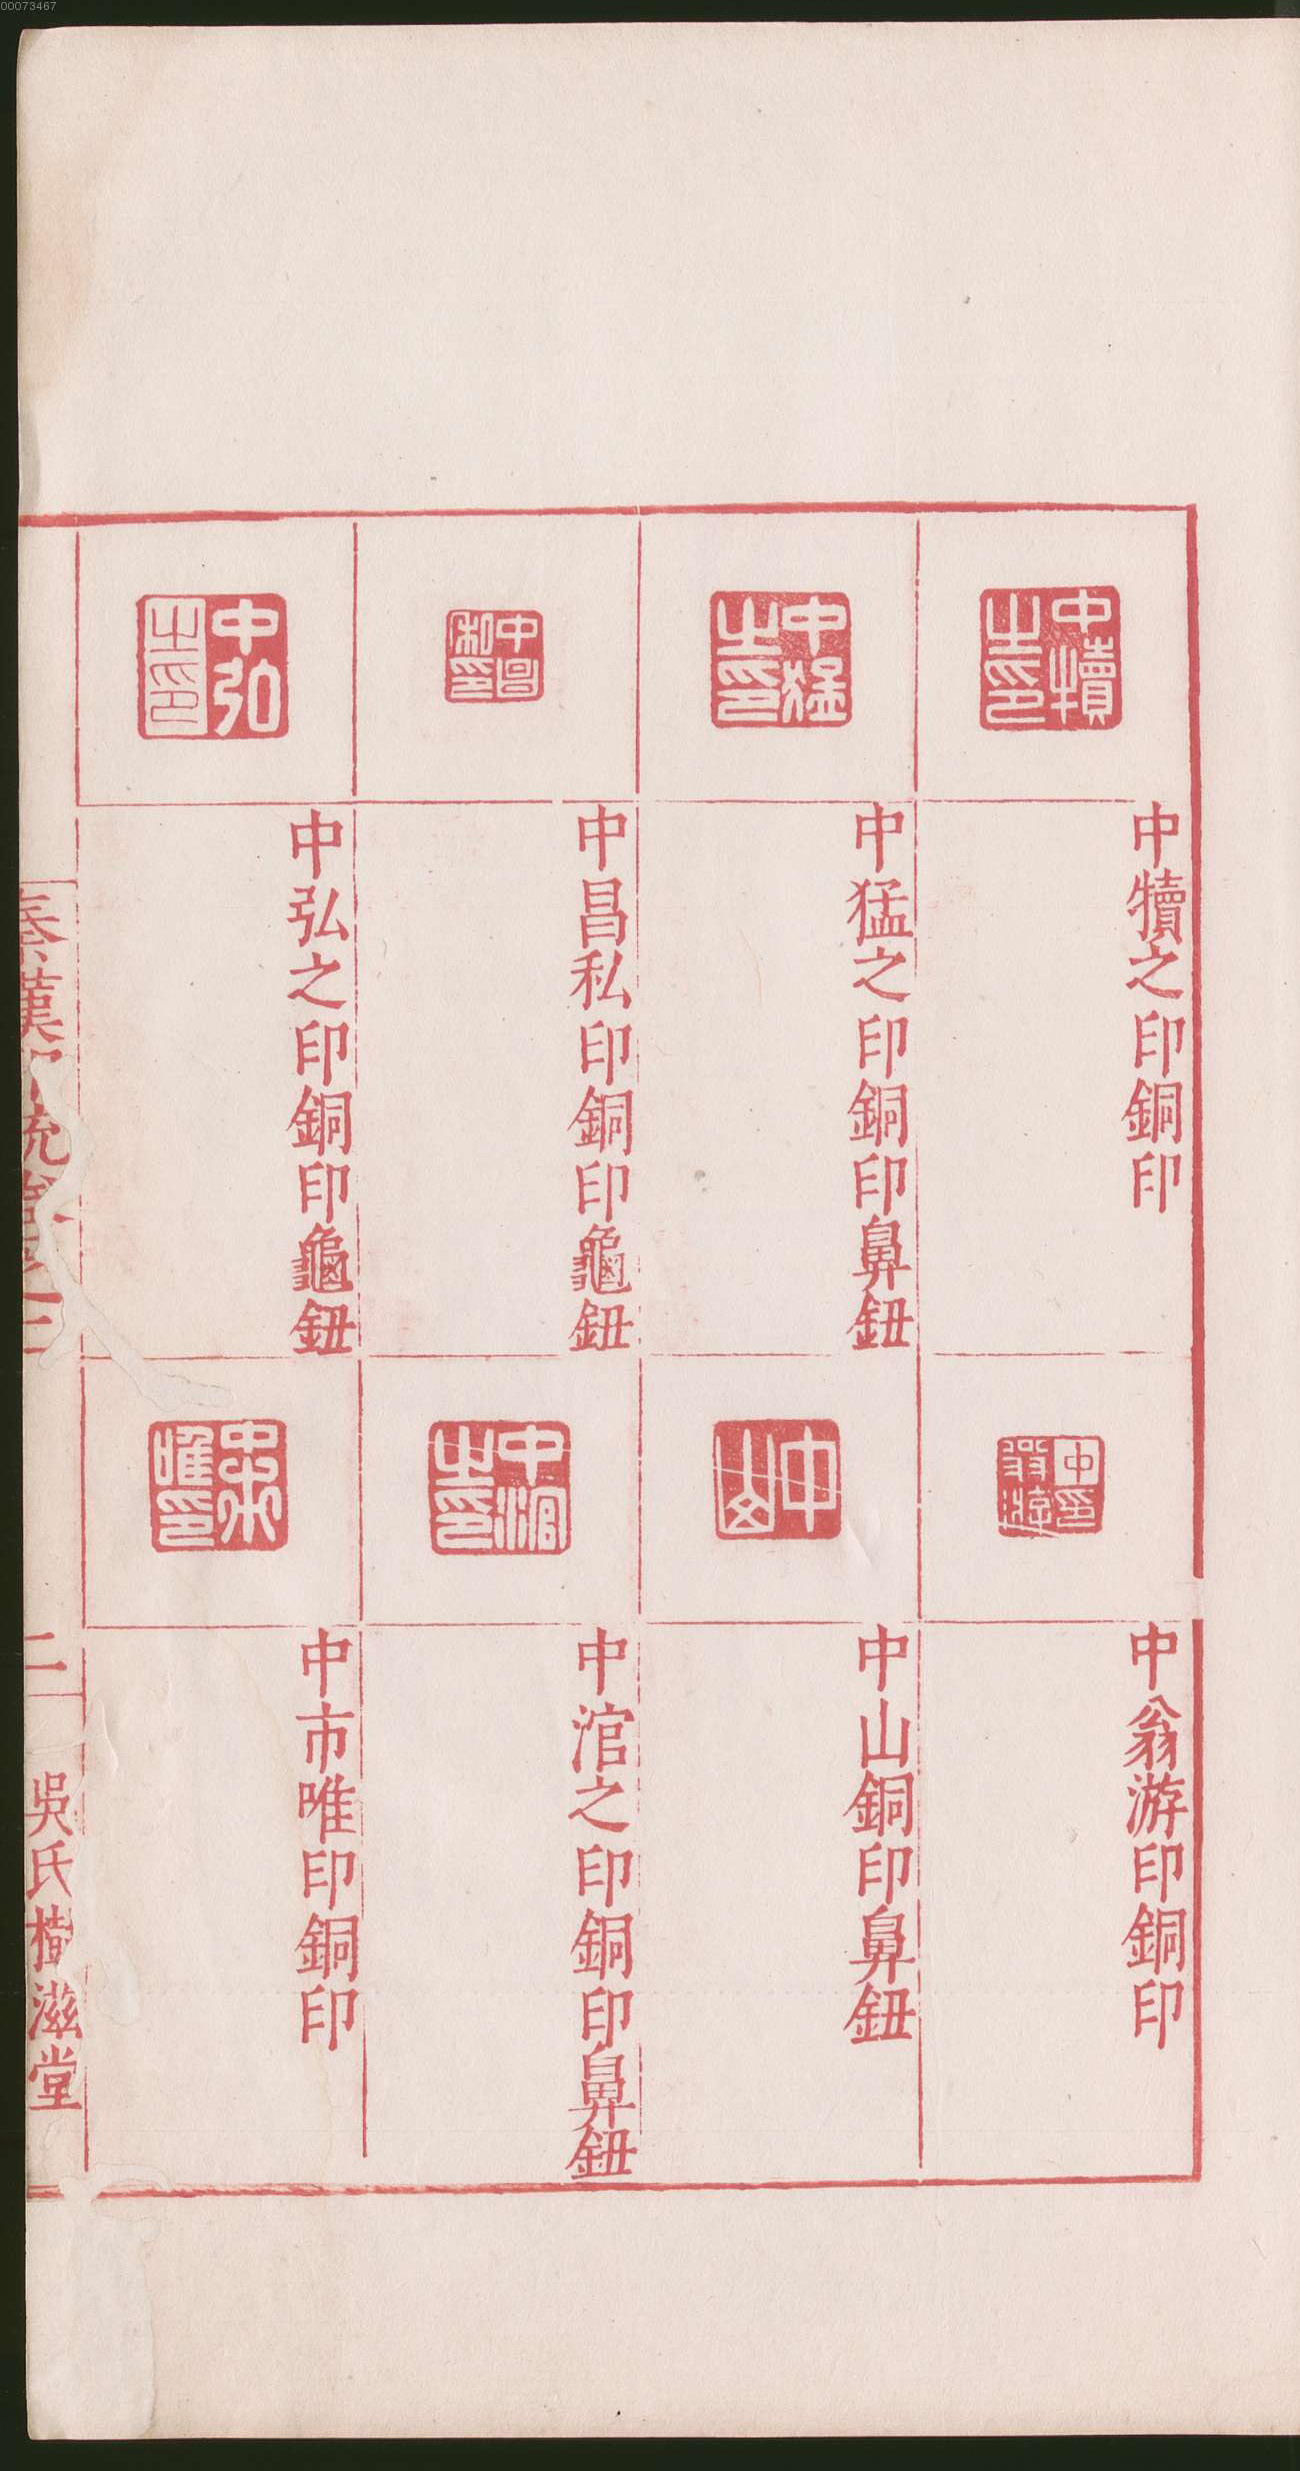 00073467
中犢之印
中犢之印銅印
中猛之印
中猛之印銅印鼻鈕
中昌私印
中昌私印銅印龜鈕
中弘之印
中弘之印銅印龜鈕
中翁游印
中翁游印銅印
中山
中山銅印鼻鈕
中涫之印
中涫之印銅印鼻鈕
中市唯印
中市唯印銅印
秦漢印統卷之三
二
吳氏樹滋堂